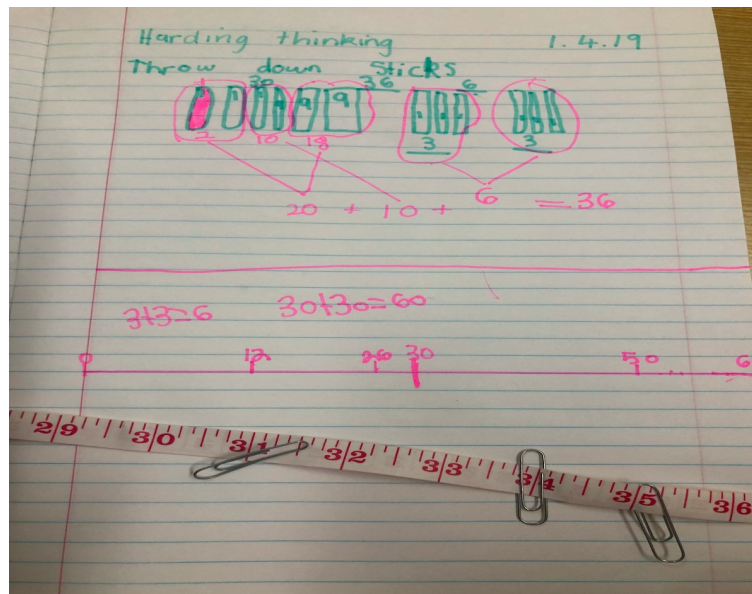 Harding thinking 1.4.19
Throw down Sticks
30 36 6
9 9
2 10 18 3 3
20 + 10 + 6 = 36
3+3=6 30+30=60
0 12 26 30 50 6
29 30 31 32 33 34 35 36